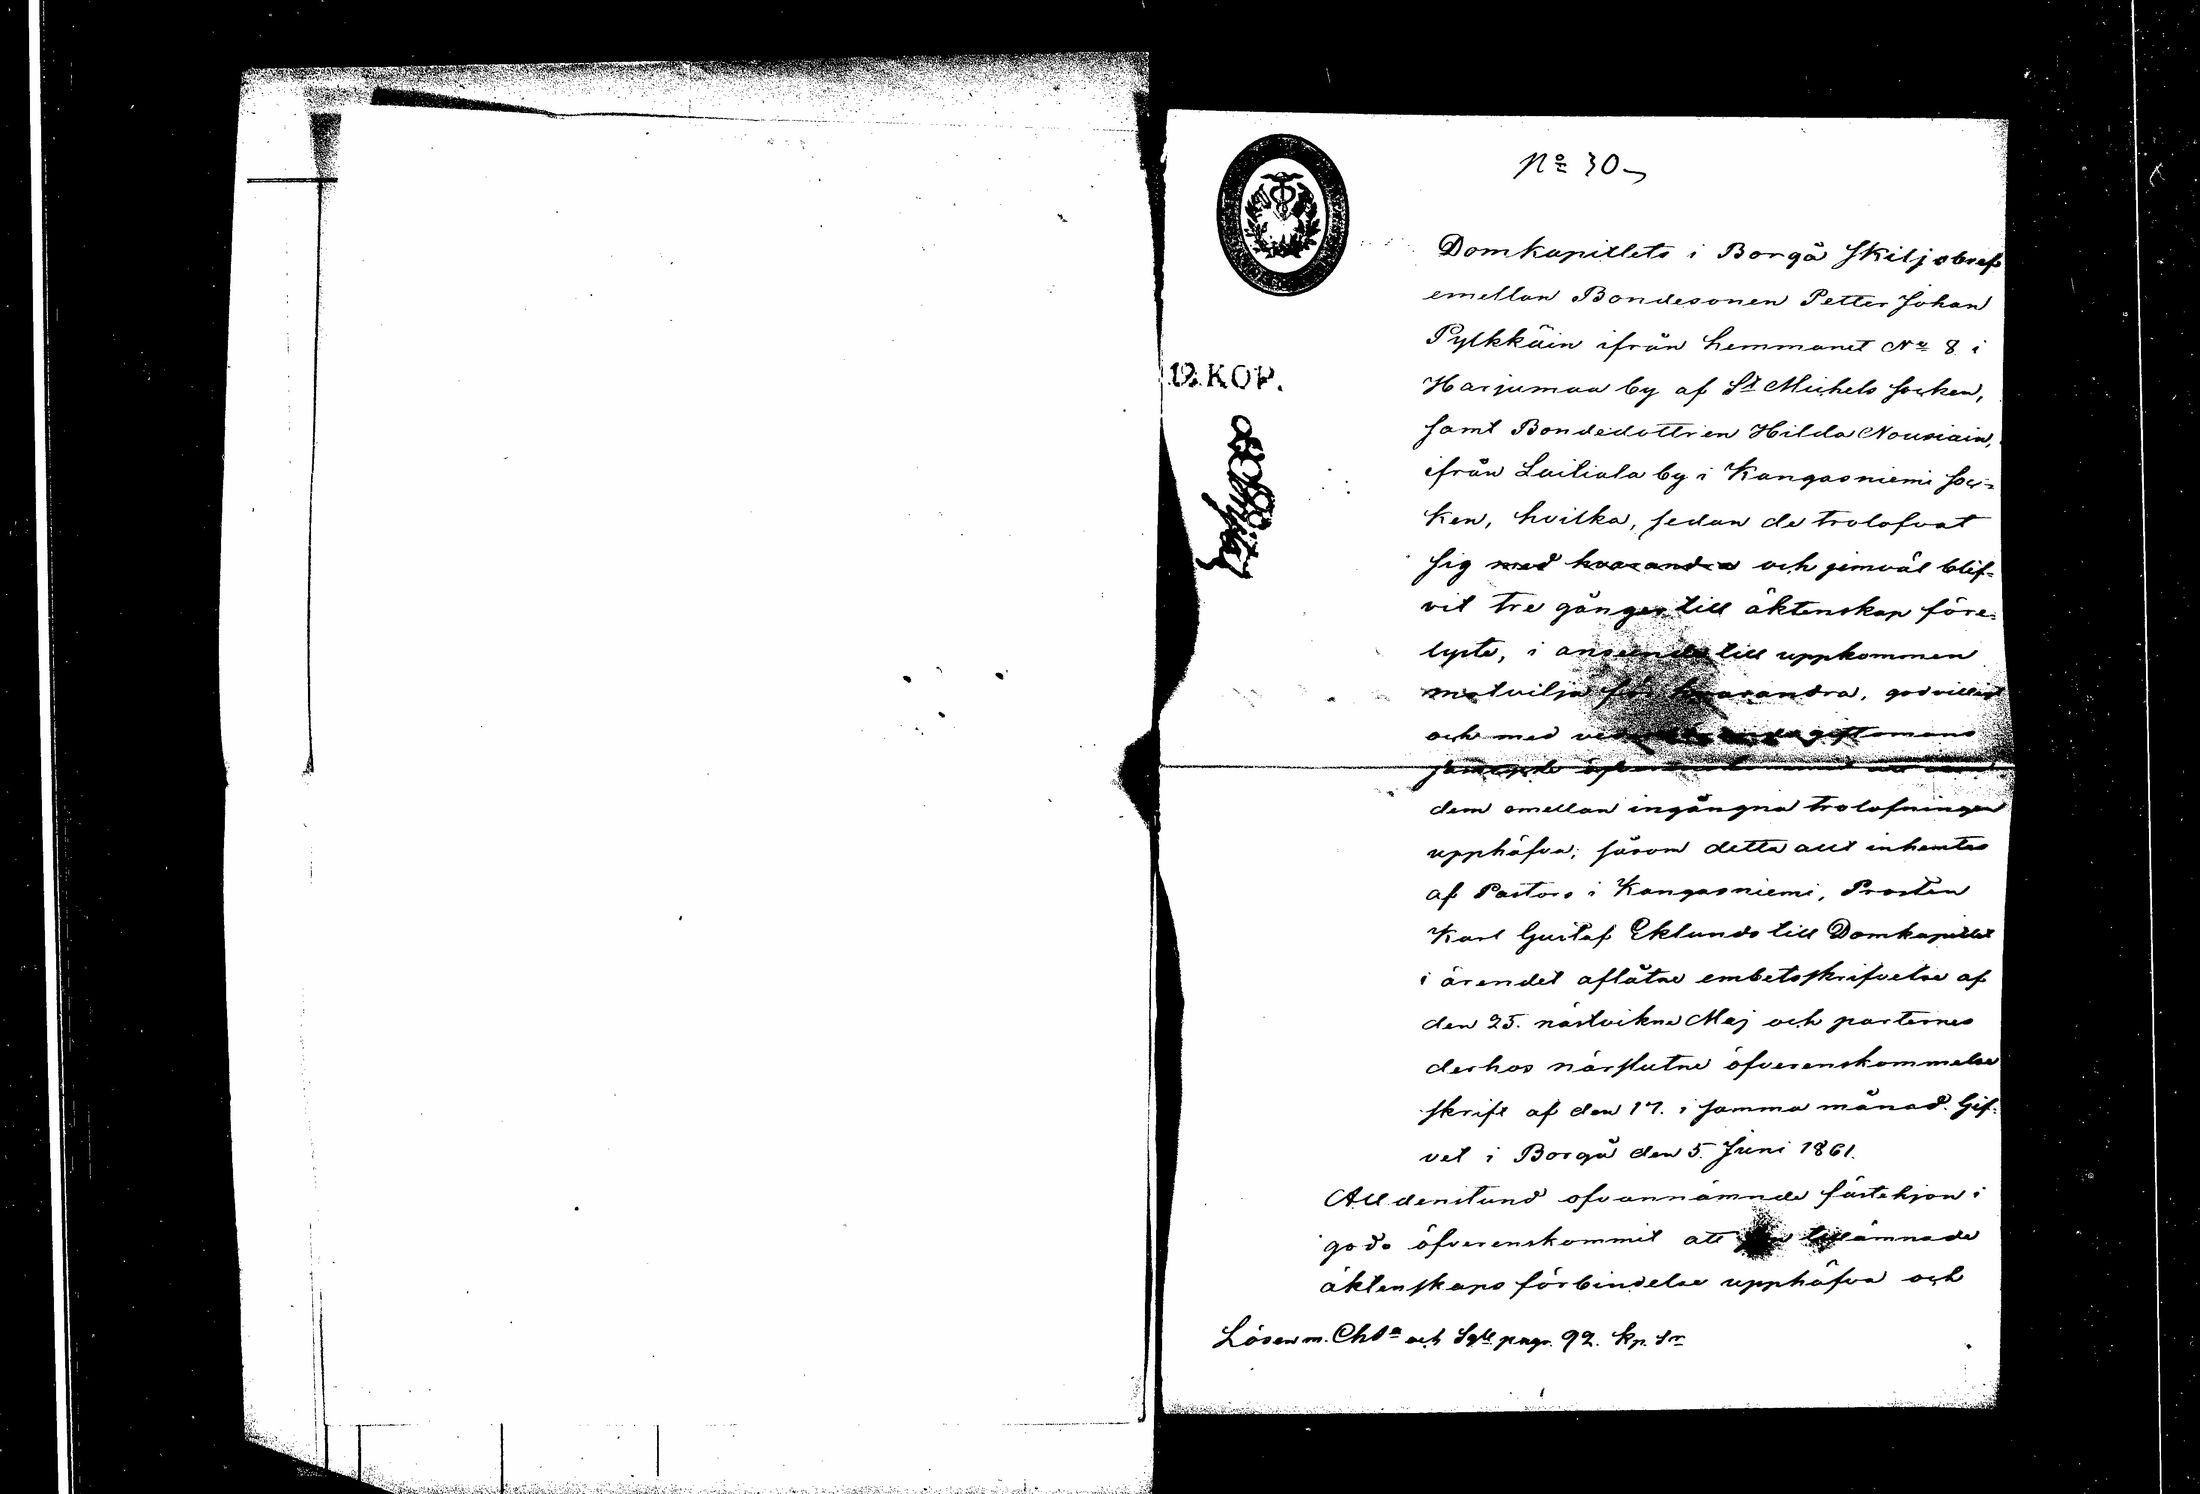 No 30
Domkapitlets i Borgå Skiljobref
emellan Bondesonen Petter Johan
Pylkkäin ifrån hemmanet No 8 i
Harjumaa by af St Michels socken,
samt Bondedottren Hilda Nousiain,
ifrån Lailiala by i Kangasniemi soc-
ken, hvilka, sedan de trolofvat
sig med hvarandra och jemväl blif-
vit tre gånger till äktenskap före-
lyste, i anseende till uppkommen
motvilja för hvarandra, godvilligt
och med giftomans
dem emellan ingångna trolofningen
upphäfva; såsom detta allt inhemtas
af Pastors i Kangasniemi, Prosten
Karl Gustaf Eklunds till Domkapitlet
i ärendet aflåtne embetsskrifvelse af
den 25. nästvikne Maj och parternes
derhos närslutne öfverenskommelse
skrift af den 17. i samma månad. Gif-
vet i Borgå den 5. Juni 1861.
Alldenstund ofvannämnde fästehjon i
godo öfverenskommit att tillämnade
äktenskaps förbindelse upphäfva och
Lösen m. Chta och Sgll pngr. 92. kp. Sr
19. KOP.